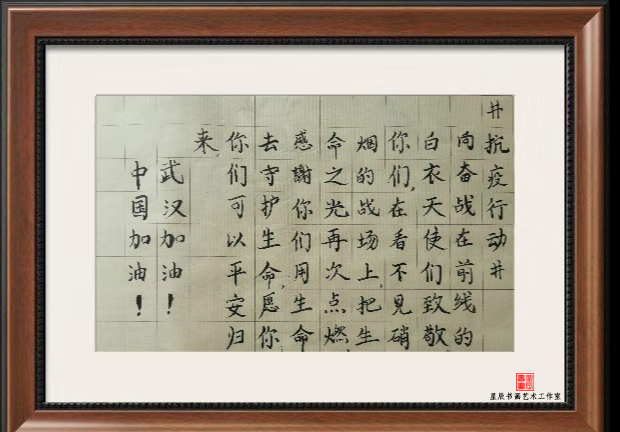 #抗疫行动#
向奋战在前线的
白衣天使们致敬
你们,在看不见硝
烟的战场上,把生
命之光再次点燃
感謝你们用生命
去守护生命,愿你
你们可以平安归
来。
武汉加油!
中国加油!
星辰书画艺术工作室